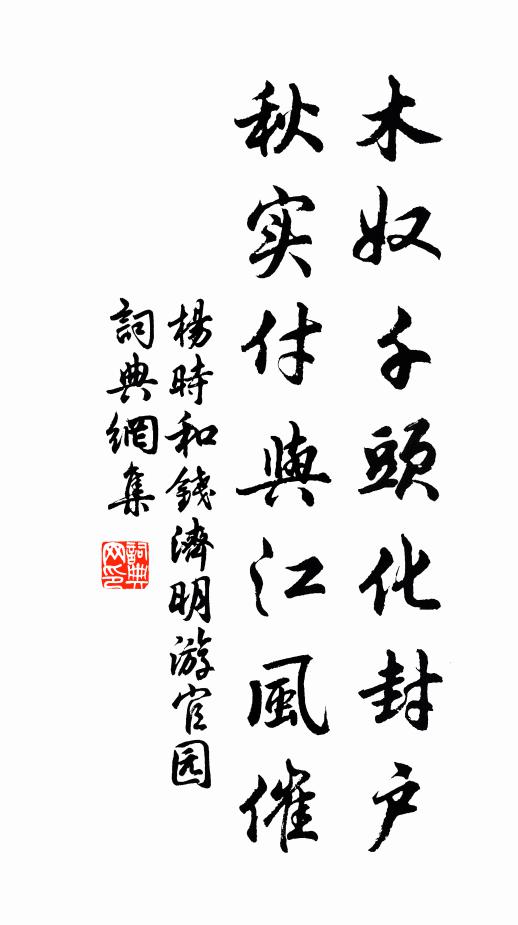 木奴千頭化封户
秋实付與江風催
楊時和錢濟明游官园
詞典網集
詞典网印